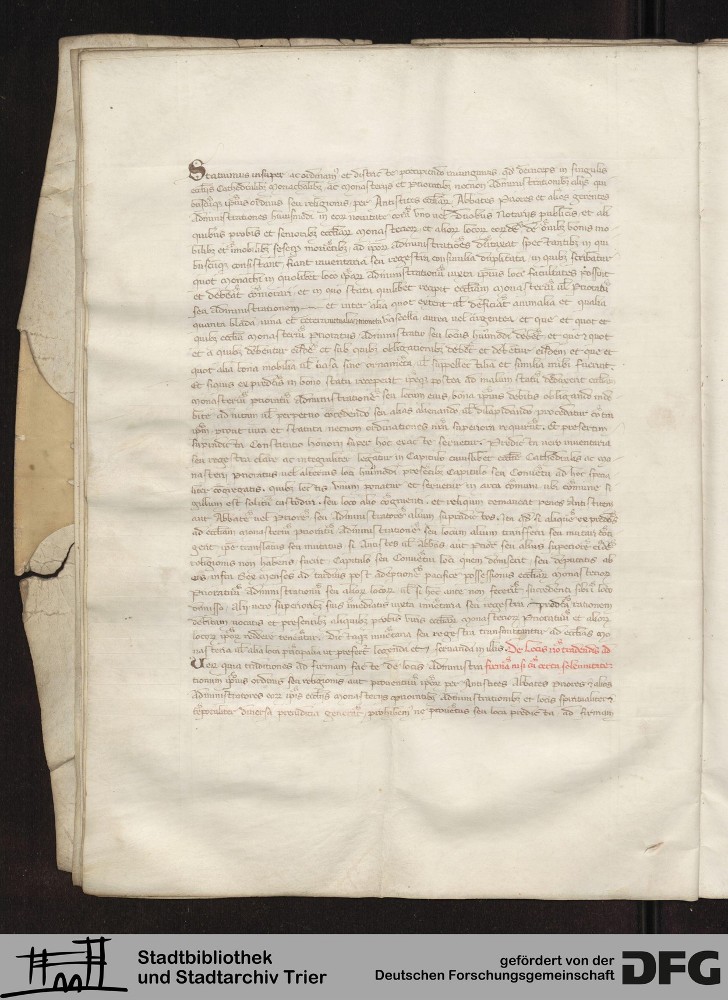 Statuimus insuper ac ordinam et districte precipiendo iniungimus q deinceps in singulis
ecclijs Cathedralibz monachalibz ac monasterijs et Prioratibz necnon administrationibz alijs qui
busdam ipius ordinis seu religionis per Antistites ecclesiar Abbates Priores et alios gerentes
administrationes huiusmodi in eor nouitate coram uno vel duobus Notarijs publicis et ali
quibus probis et senioribz ecclesiar monasterior et alior locor eordem de oibz bonis mo
bilibz et imobilibz seseqz mouentibz ad ipor administrationes dumtaxat spectantibz in qui
buscumqz consistant fiant inuentaria seu regestra consimilia duplicata in quibz scribatur
quot monachi in quolibet loco ipar administrationu iuxta ipius loci facultates possint
et debeat comorari et in quo statu quilibet recepit eccliam monasteriu ul Prioratu
seu administrationem et inter alia quot extent ul deficiat animalia et qualia
quanta blada uina et cetera uasella aurea uel argentea et que et quot et
quibz ecclia monasteriu Prioratus administratio seu locus huiusmodi debet et que et quot
et a quibz debentur eisde et sub quibz obligationibz debet et debetur eisdem et que et
quot alia bona mobilia ul uasa siue ornamenta ul suppellectilia et similia inibi fuerint
Et siquis ex predictis in bono statu receperat ipqz postea ad malum statu deduxerit ecclia
monasteriu prioratu administratione seu locum eius bona ipius debitis obligando inde
bite ad uitam ul perpetuo cocedendo seu alias alienando ul dilapidando procedatur contra
ipm prout iura et statuta necnon ordinationes nri superioru requirut et presertim
Benedicti Constitutio Honorij super hoc exacte seruetur Predicta uero inuentaria
seu regestra clare ac integraliter legatur in Capitulo cuiuslibet ecclesie Cathedralis ac mo
nasterij Prioratus uel alterius loci huiusmodi presentibz Capitulo seu Conuetu ad hoc specia
liter cogregatis quibz lectis unum ponatur et seruetur in arca comuni ubi comune si
gillum est solitu custodiri seu loco alio cogruenti et reliquum remaneat penes Antistitem
aut Abbate uel Priore seu administratore alium supradictos
ad eccliam monasteriu prioratu administratione seu locum alium transferri seu mutari contin
gerit ipe translatus seu mutatus si Antistes ul Abbas aut Prior seu alius superiore eiusde
religionis non habens fuerit Capitulo seu Conuetui loci quem dimiserit seu deputatis ab
eis infra sex menses ad tardius post adeptione pacifice possessionis ecclesiar monasterior
Prioratuu administrationu seu alior locor ul si hoc ante non fecerit successori sibi in loco
dimisso Alij uero superioribz suis imediatis iuxta inuetaria seu regestra predicta rationem
debitam uocatis et presentibz aliquibz probis uiris ecclesiar monasterior Prioratuu et alior
locor ipor reddere teneatur Dictaqz inuetaria seu regestra transmittantur ad ecclias mo
nasteria ul alia loca principalia ut prefertur legenda et seruanda in illis De Locis no tradendis ad
Uer quia traditiones ad firmam facte de locis Administra firma nisi cu certa solemnitate
tionum ipius ordinis seu religionis aut prouentuu ipor per Antistites Abbates Priores et alios
Administratores eor ipis ecclijs monasterijs Prioratibz Administrationibz et locis spiritualiter et
temporaliter diuersa preiudicia generat prohibem ne prouetus seu loca predicta ad firmam
Stadtbibliothek
und Stadtarchiv Trier
gefördert von der
Deutschen Forschungsgemeinschaft
DFG